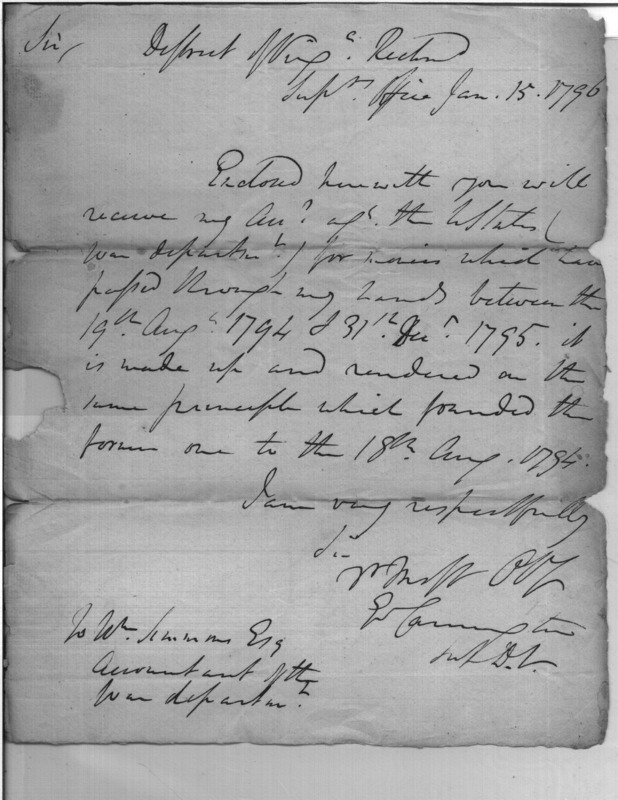 Sir, District of Virg.a Richmd
Sup.rs Office Jan. 15. 1796
Enclosed herewith you will
receive my Acc.t ag.t the U States (
War departm.t) for monies which have
passed through my hands between the
19th Aug.t 1794 & 31st Dec.r 1795. it
is made up and rendered on the
same principle which founded the
former one to the 18th Aug. 1794.
I am very respectfully
Sir
Yr Most Obt
Ed Carrington
To Wm Simmons Esq
Accountant of the
War departm.t